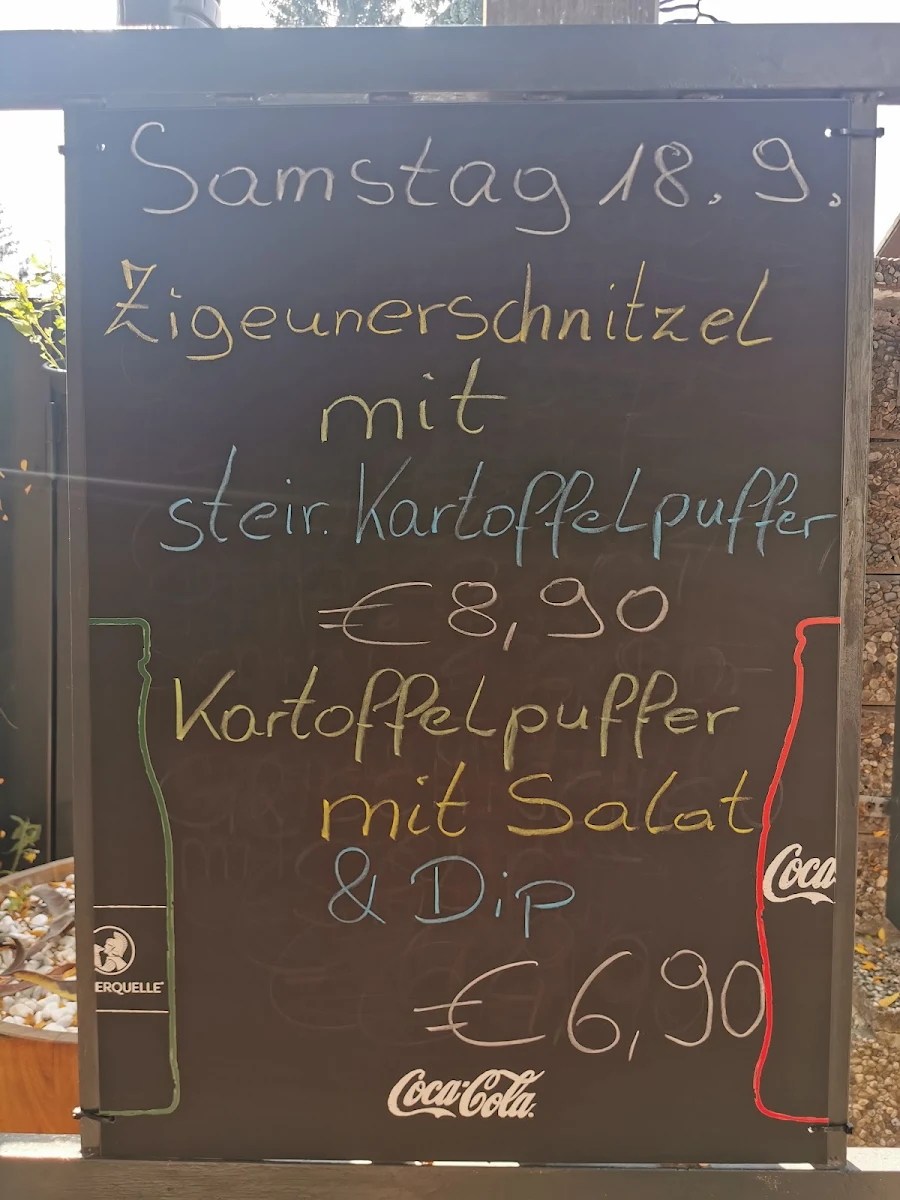 Samstag 18. 9.
Zigeunerschnitzel
mit
steir. Kartoffelpuffer
€ 8,90
Kartoffelpuffer
mit Salat
& Dip
€ 6,90
Coca
ERQUELLE
Coca-Cola